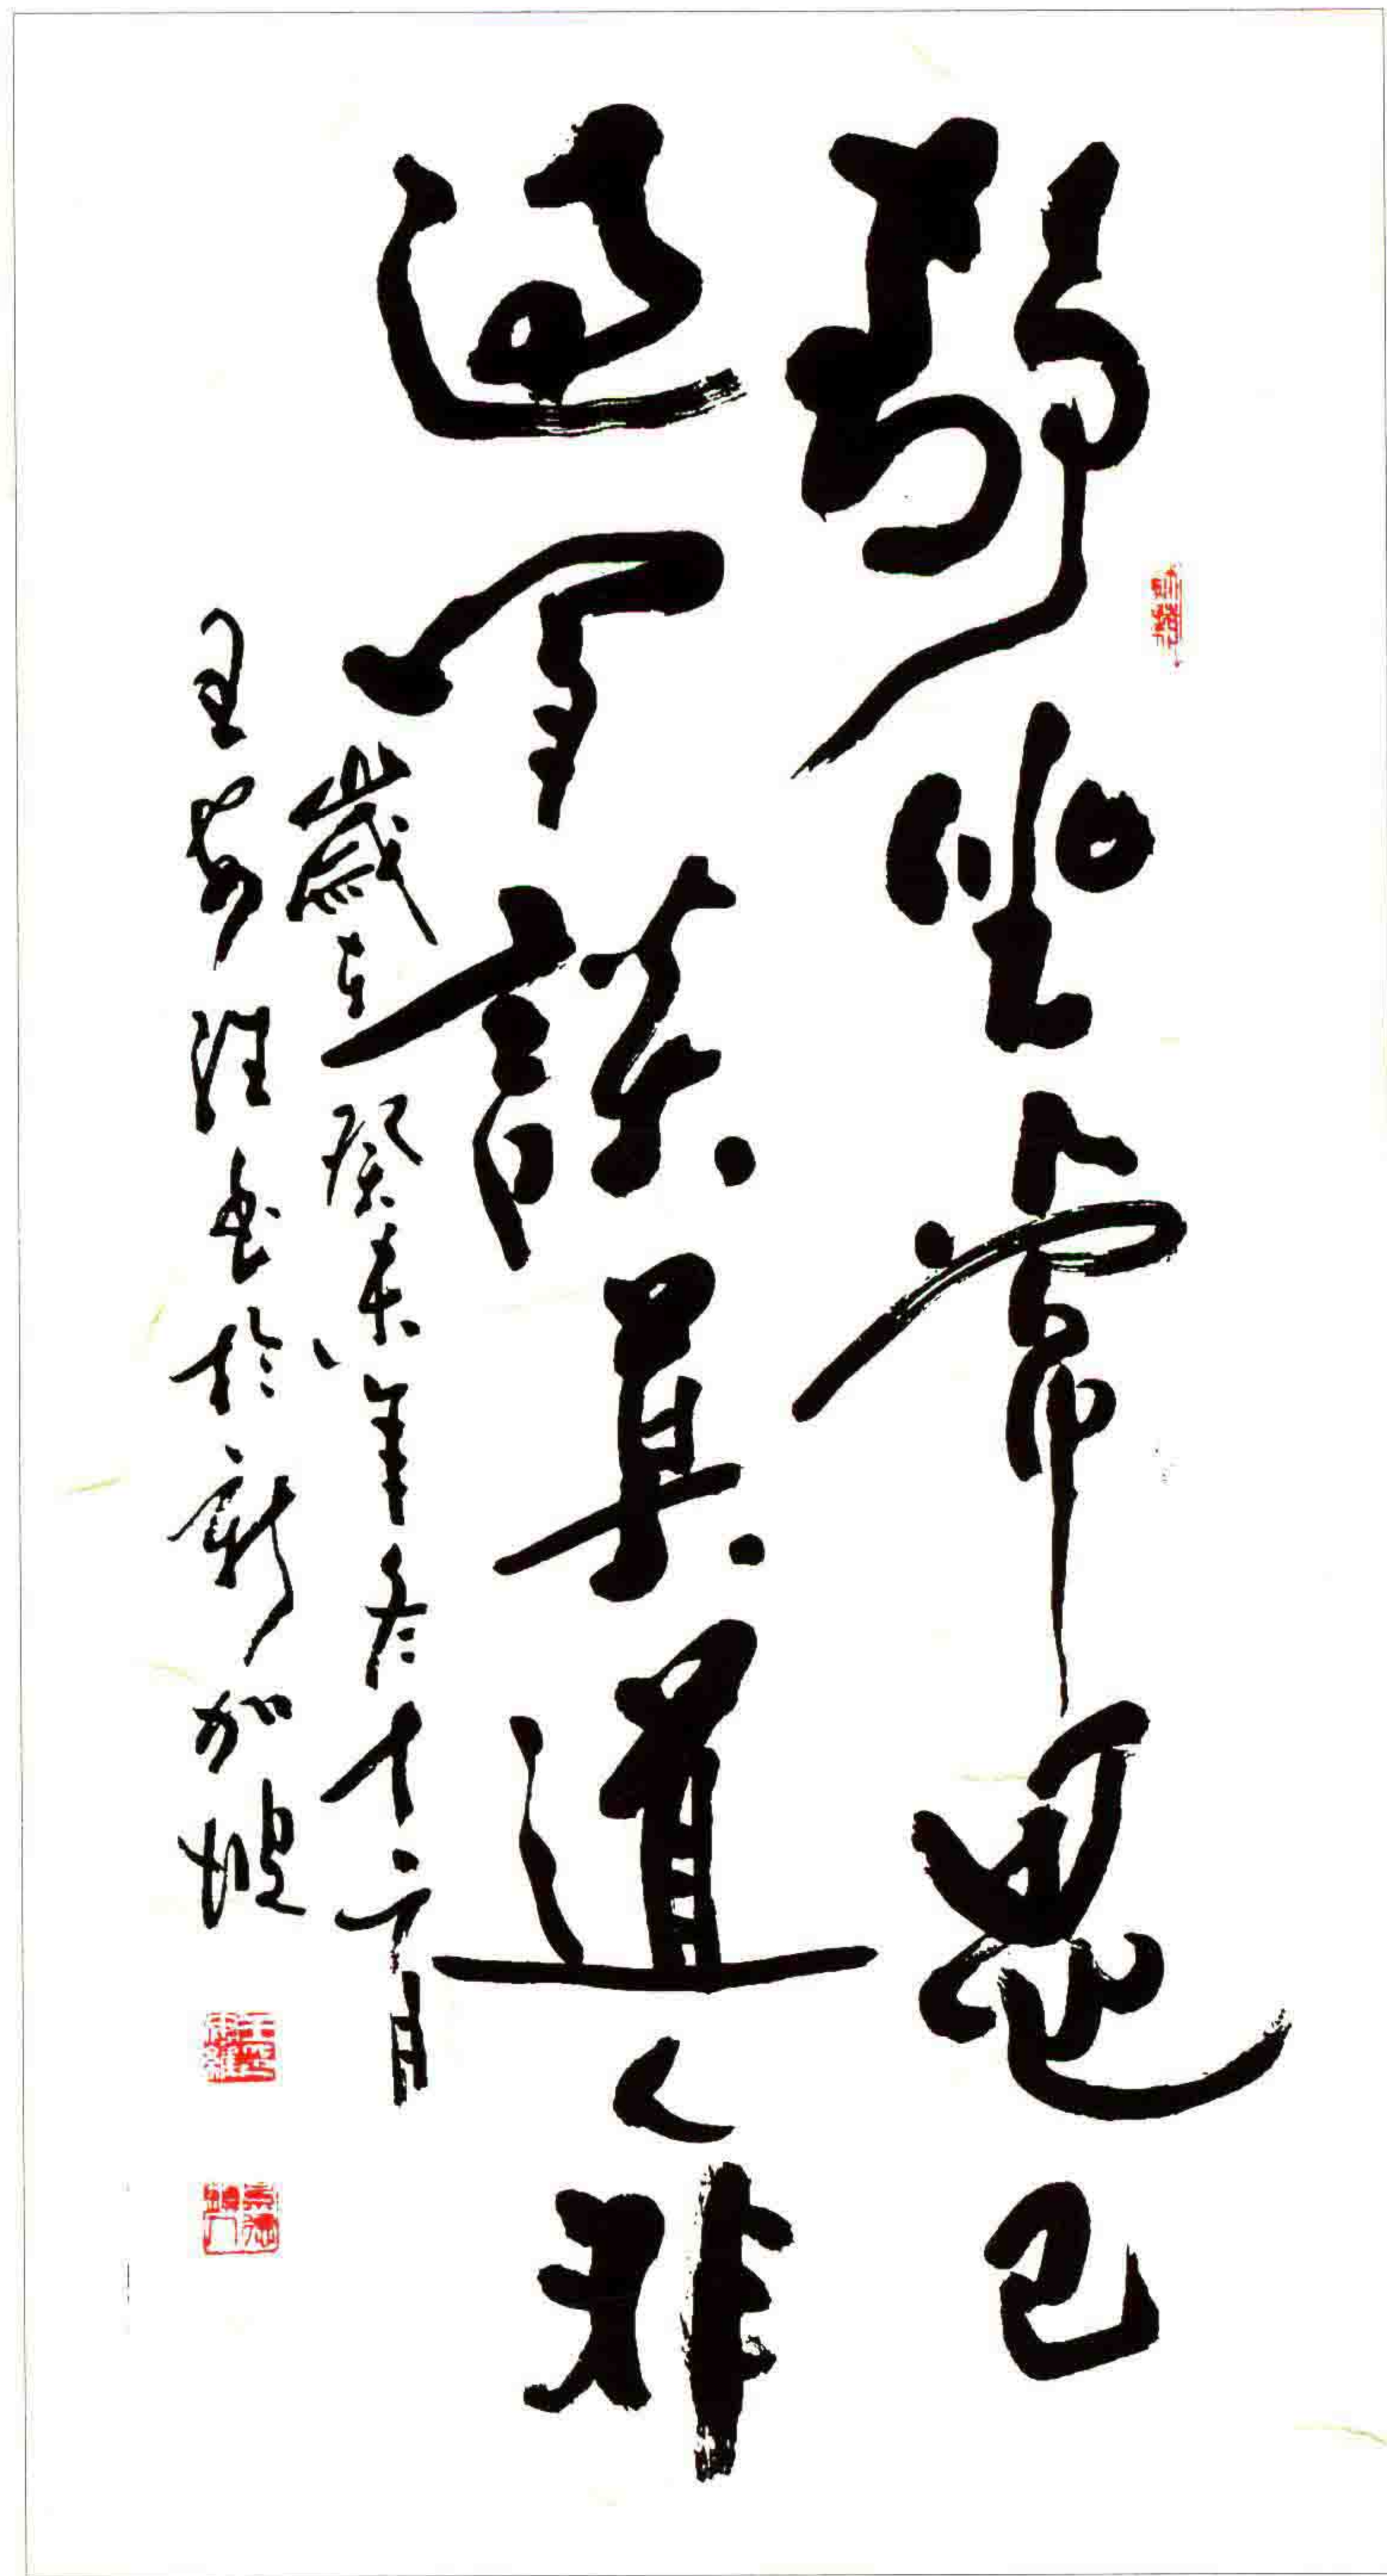 靜坐常思己
過閑談莫道人非
歲在癸未年冬十二月
王 書於新加坡